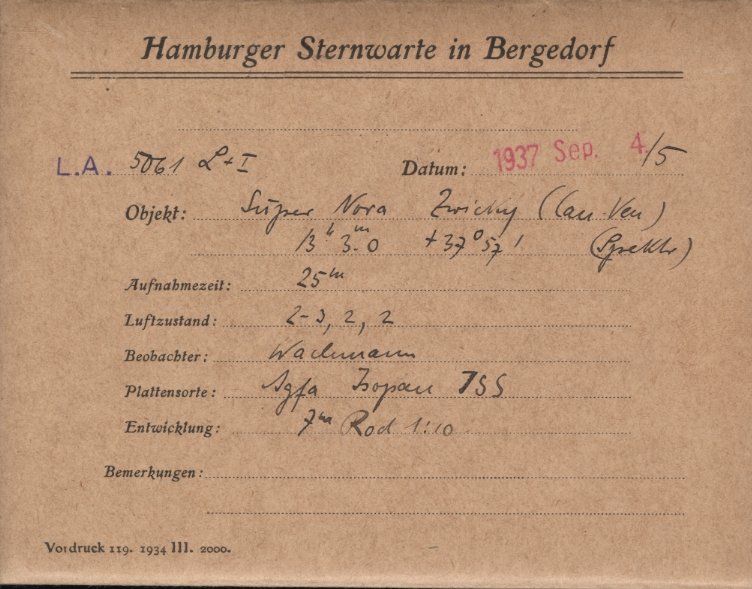 Hamburger Sternwarte in Bergedorf
L.A. 5061 L+I Datum: 1937 Sep. 4./5
Objekt: Super Nova Zwicky (Can. Ven)
13ʰ 3ᵐ.0 +37°57' (Spektr)
Aufnahmezeit: 25ᵐ
Luftzustand: 2-3, 2, 2
Beobachter: Wachmann
Plattensorte: Agfa Isopan ISS
Entwicklung: 7ᵐ Rod 1:10
Bemerkungen:
Vordruck 119. 1934 III. 2000.